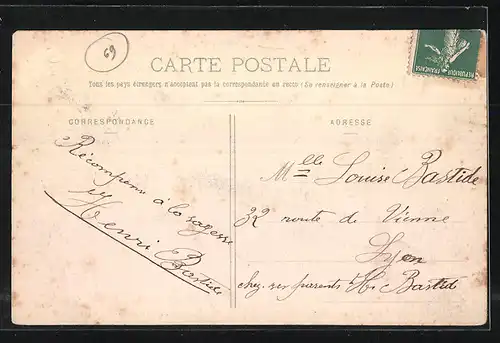 69
CARTE POSTALE
Tous les pays étrangers n'acceptent pas la correspondance au recto (Se renseigner à la Poste)
CORRESPONDANCE
Récompense à la sagesse
Henri Bastide
ADRESSE
Mlle Louise Bastide
32 route de Vienne
Lyon
chez ses parents M. Bastid
REPUBLIQUE
FRANÇAISE